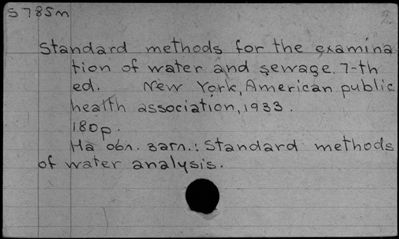 S785m
Standard methods for the examina
tion of water and sewage. 7-th
ed. New York, American public
health association, 1933.
180p.
На обл. загл.: Standard methods
of water analysis.